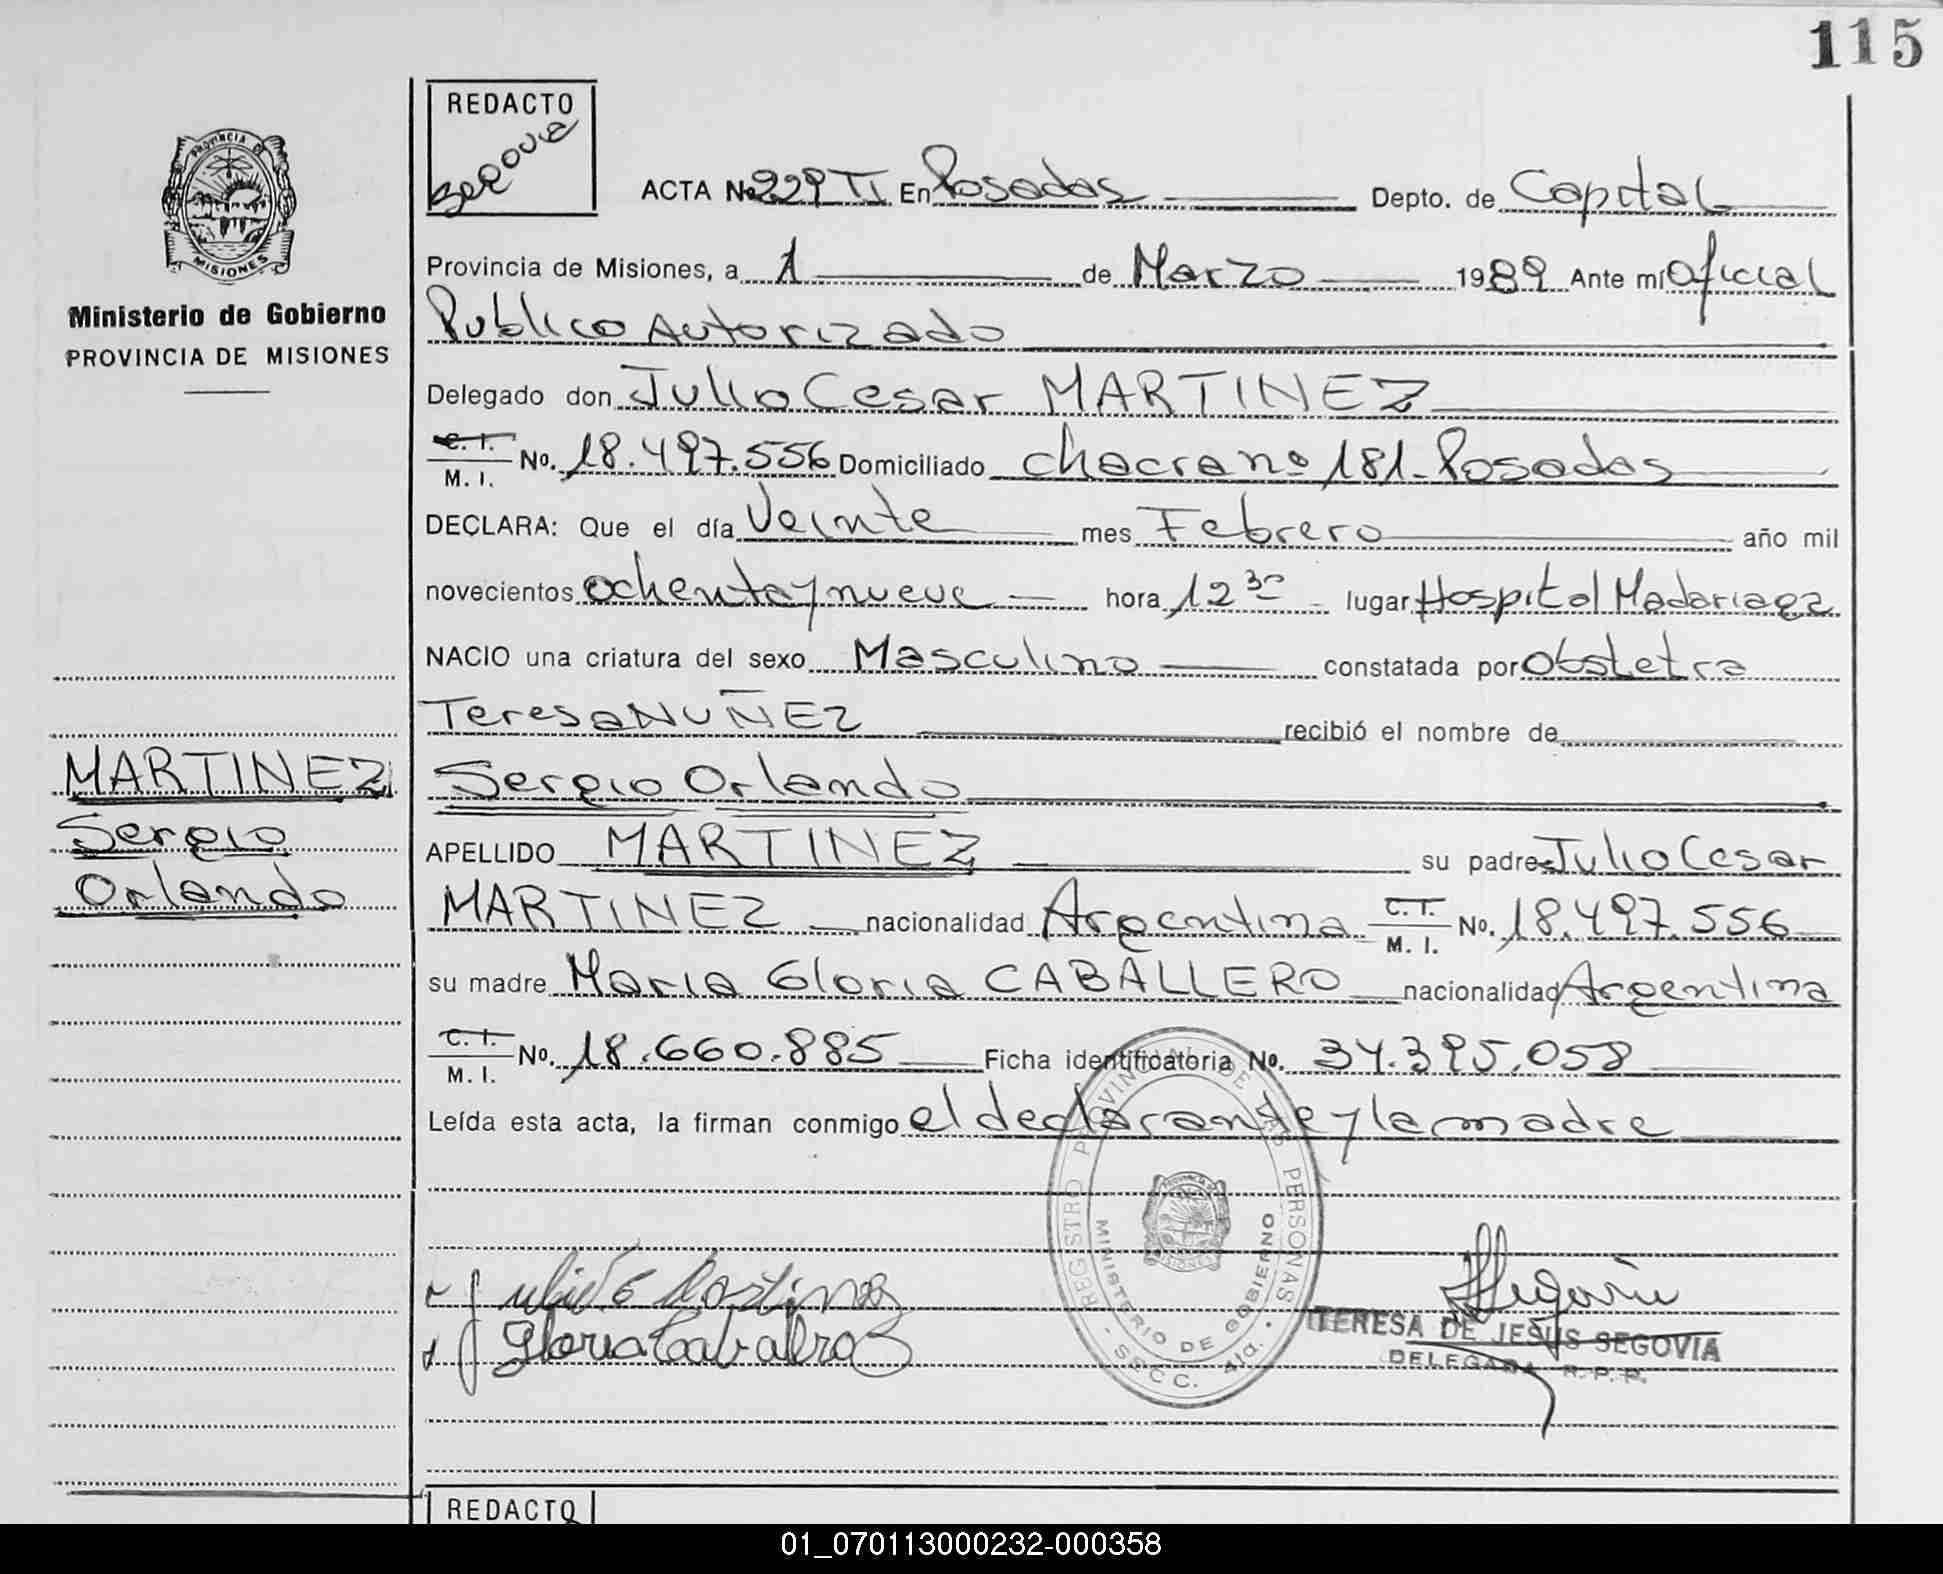 115
REDACTO
Segovia
ACTA No. 229 TI En Posadas Depto. de Capital
PROVINCIA DE
MISIONES
Ministerio de Gobierno
PROVINCIA DE MISIONES
Provincia de Misiones, a 1 de Marzo 1989 Ante mí Oficial
Publico Autorizado
Delegado don Julio Cesar MARTINEZ
C. I.
M. I. No. 18.497.556 Domiciliado chacra nº 181 - Posadas
DECLARA: Que el día Veinte mes Febrero año mil
novecientos ochenta y nueve hora 12 30 lugar Hospital Madariaga
NACIO una criatura del sexo Masculino constatada por Obstetra
Teresa NUÑEZ recibió el nombre de
MARTINEZ
Sergio
Orlando
Sergio Orlando
APELLIDO MARTINEZ su padre Julio Cesar
MARTINEZ nacionalidad Argentina C. I.
M. I. No. 18.497.556
su madre Maria Gloria CABALLERO nacionalidad Argentina
C. I.
M. I. No. 18.660.885 Ficha identificatoria No. 34.395.058
Leída esta acta, la firman conmigo el declarante y la madre
REGISTRO PROVINCIAL DE LAS PERSONAS
MINISTERIO DE GOBIERNO
SECC. 4ta.
MISIONES
Gloria Caballero
TERESA DE JESUS SEGOVIA
DELEGADA R. P. P.
REDACTO
01_070113000232-000358